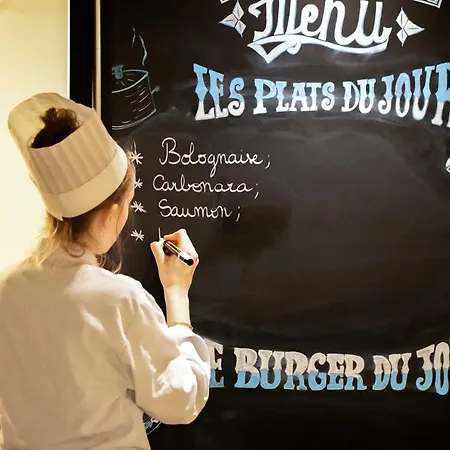 Menu
LES PLATS DU JOUR
* Bolognaise ;
* Carbonara ;
* Saumon ;
*
BURGER DU JO